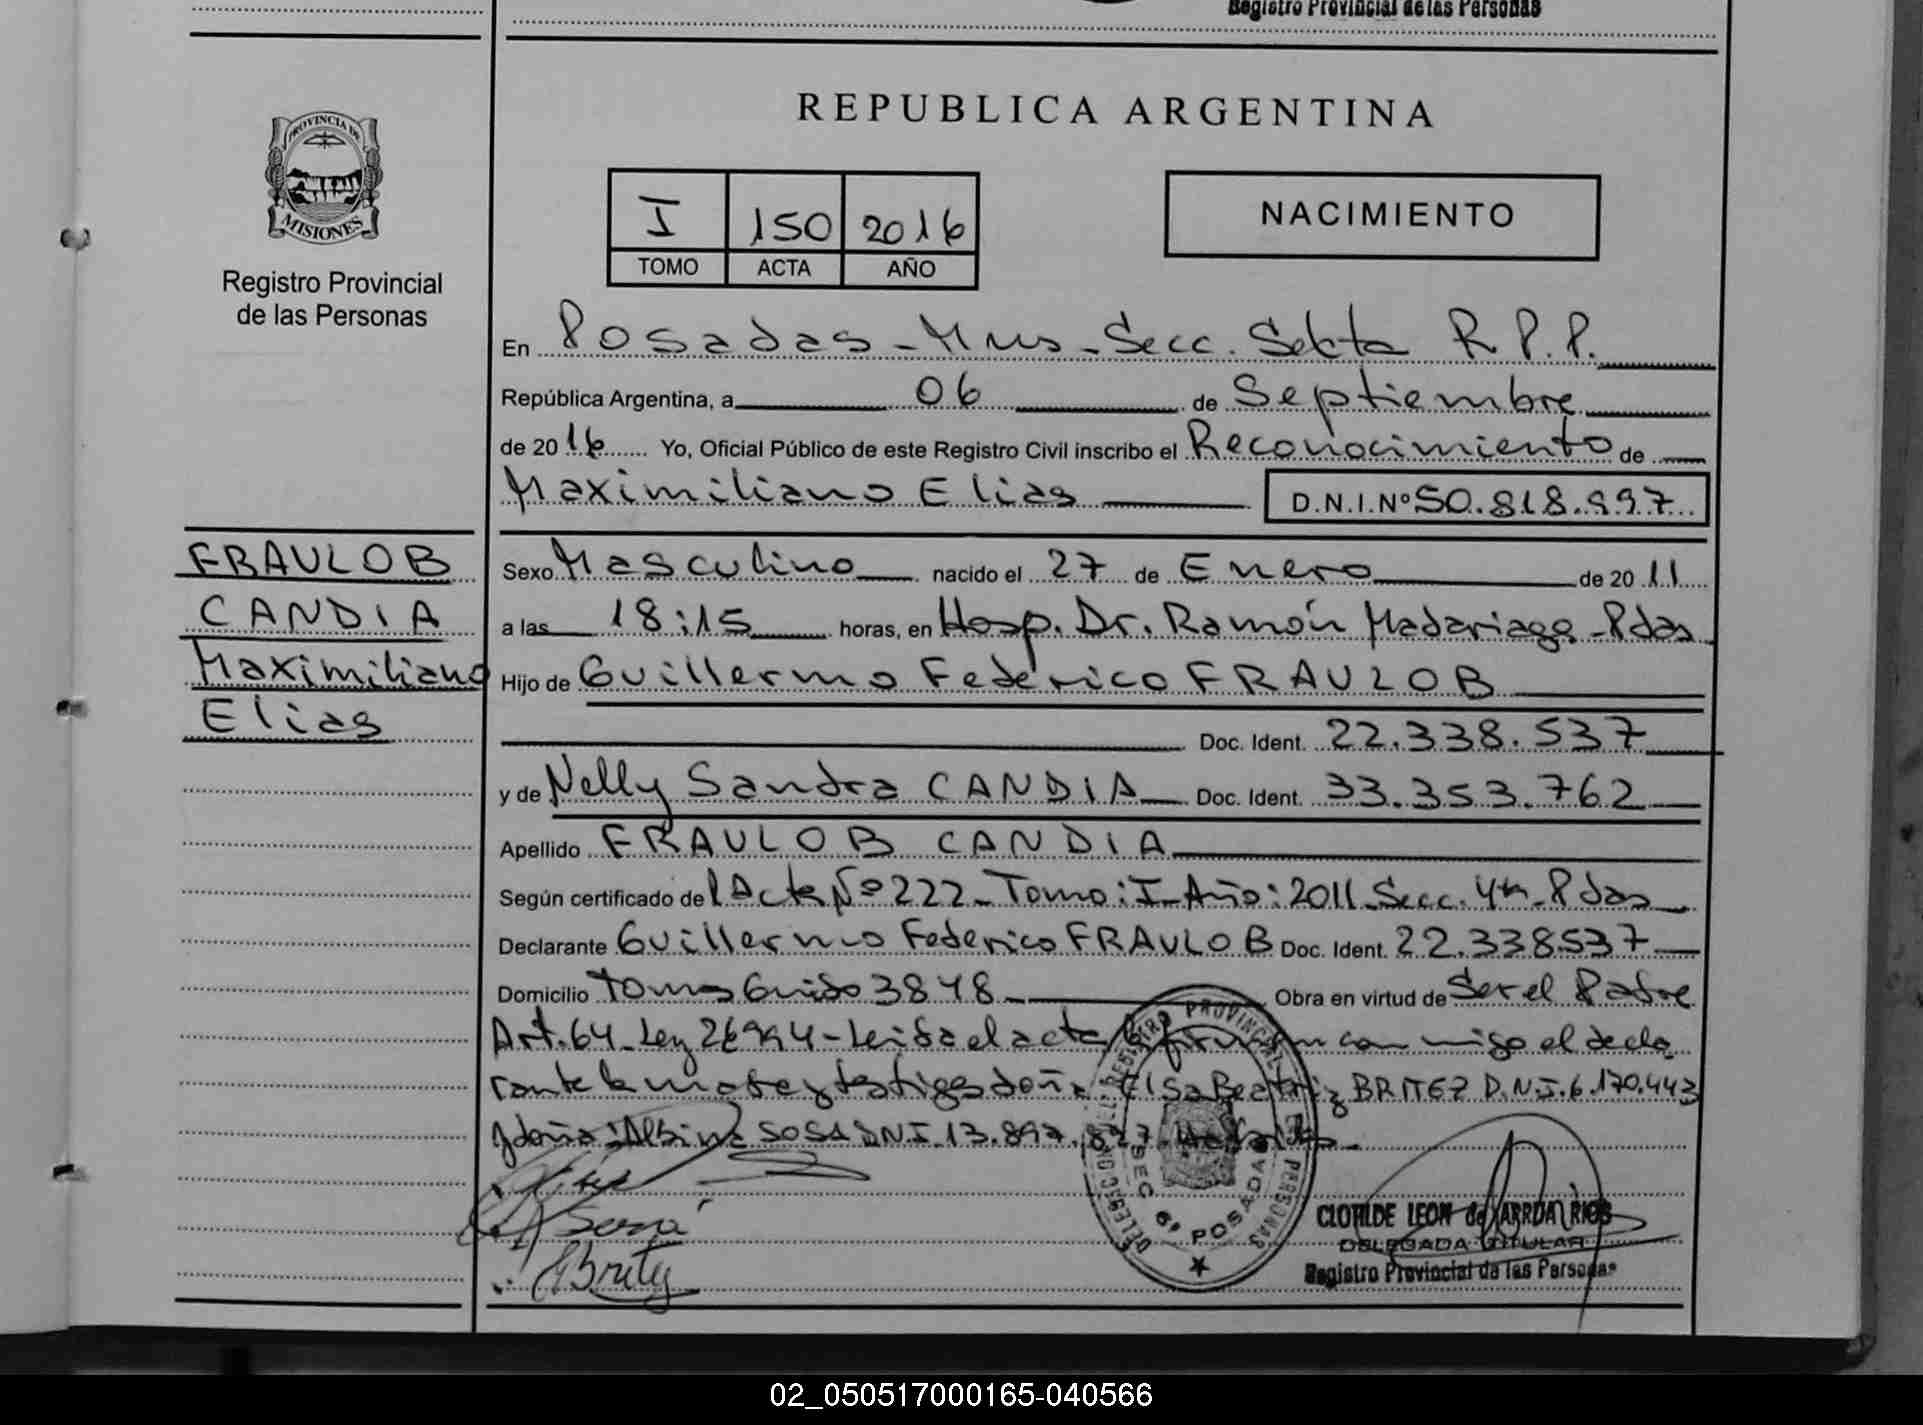 Registro Provincial de las Personas
PROVINCIA DE
MISIONES
Registro Provincial
de las Personas
REPUBLICA ARGENTINA
I 150 2016
TOMO ACTA AÑO
NACIMIENTO
En Posadas - Mnes - Secc. Sexta R.P.P.
República Argentina, a 06 de Septiembre
de 2016 Yo, Oficial Público de este Registro Civil inscribo el Reconocimiento de
Maximiliano Elias D.N.I.Nº 50.818.997
FRAULOB
CANDIA
Maximiliano
Elias
Sexo Masculino nacido el 27 de Enero de 2011
a las 18:15 horas, en Hosp. Dr. Ramón Madariaga - Pdas
Hijo de Guillermo Federico FRAULOB
Doc. Ident. 22.338.537
y de Nelly Sandra CANDIA Doc. Ident. 33.353.762
Apellido FRAULOB CANDIA
Según certificado del Acta Nº 222 - Tomo: I - Año: 2011 - Secc. 4ta - Pdas
Declarante Guillermo Federico FRAULOB Doc. Ident. 22.338537
Domicilio Tomas Guido 3848 - Obra en virtud de Ser el Padre
Art. 64 - Ley 26994 - Leida el acta firman con migo el decla
rante la madre y testigos doña Elsa Beatriz BRITEZ D.N.I. 6.170.443
y doña: Albina SOSA DNI. 13.897.827
Sosa
Britez
DELEGACION REGISTRO PROVINCIAL PERSONAS
SEC 6ª POSADAS
CLOTILDE LEON de ARRUA RIOS
DELEGADA TITULAR
Registro Provincial de las Personas
02_050517000165-040566